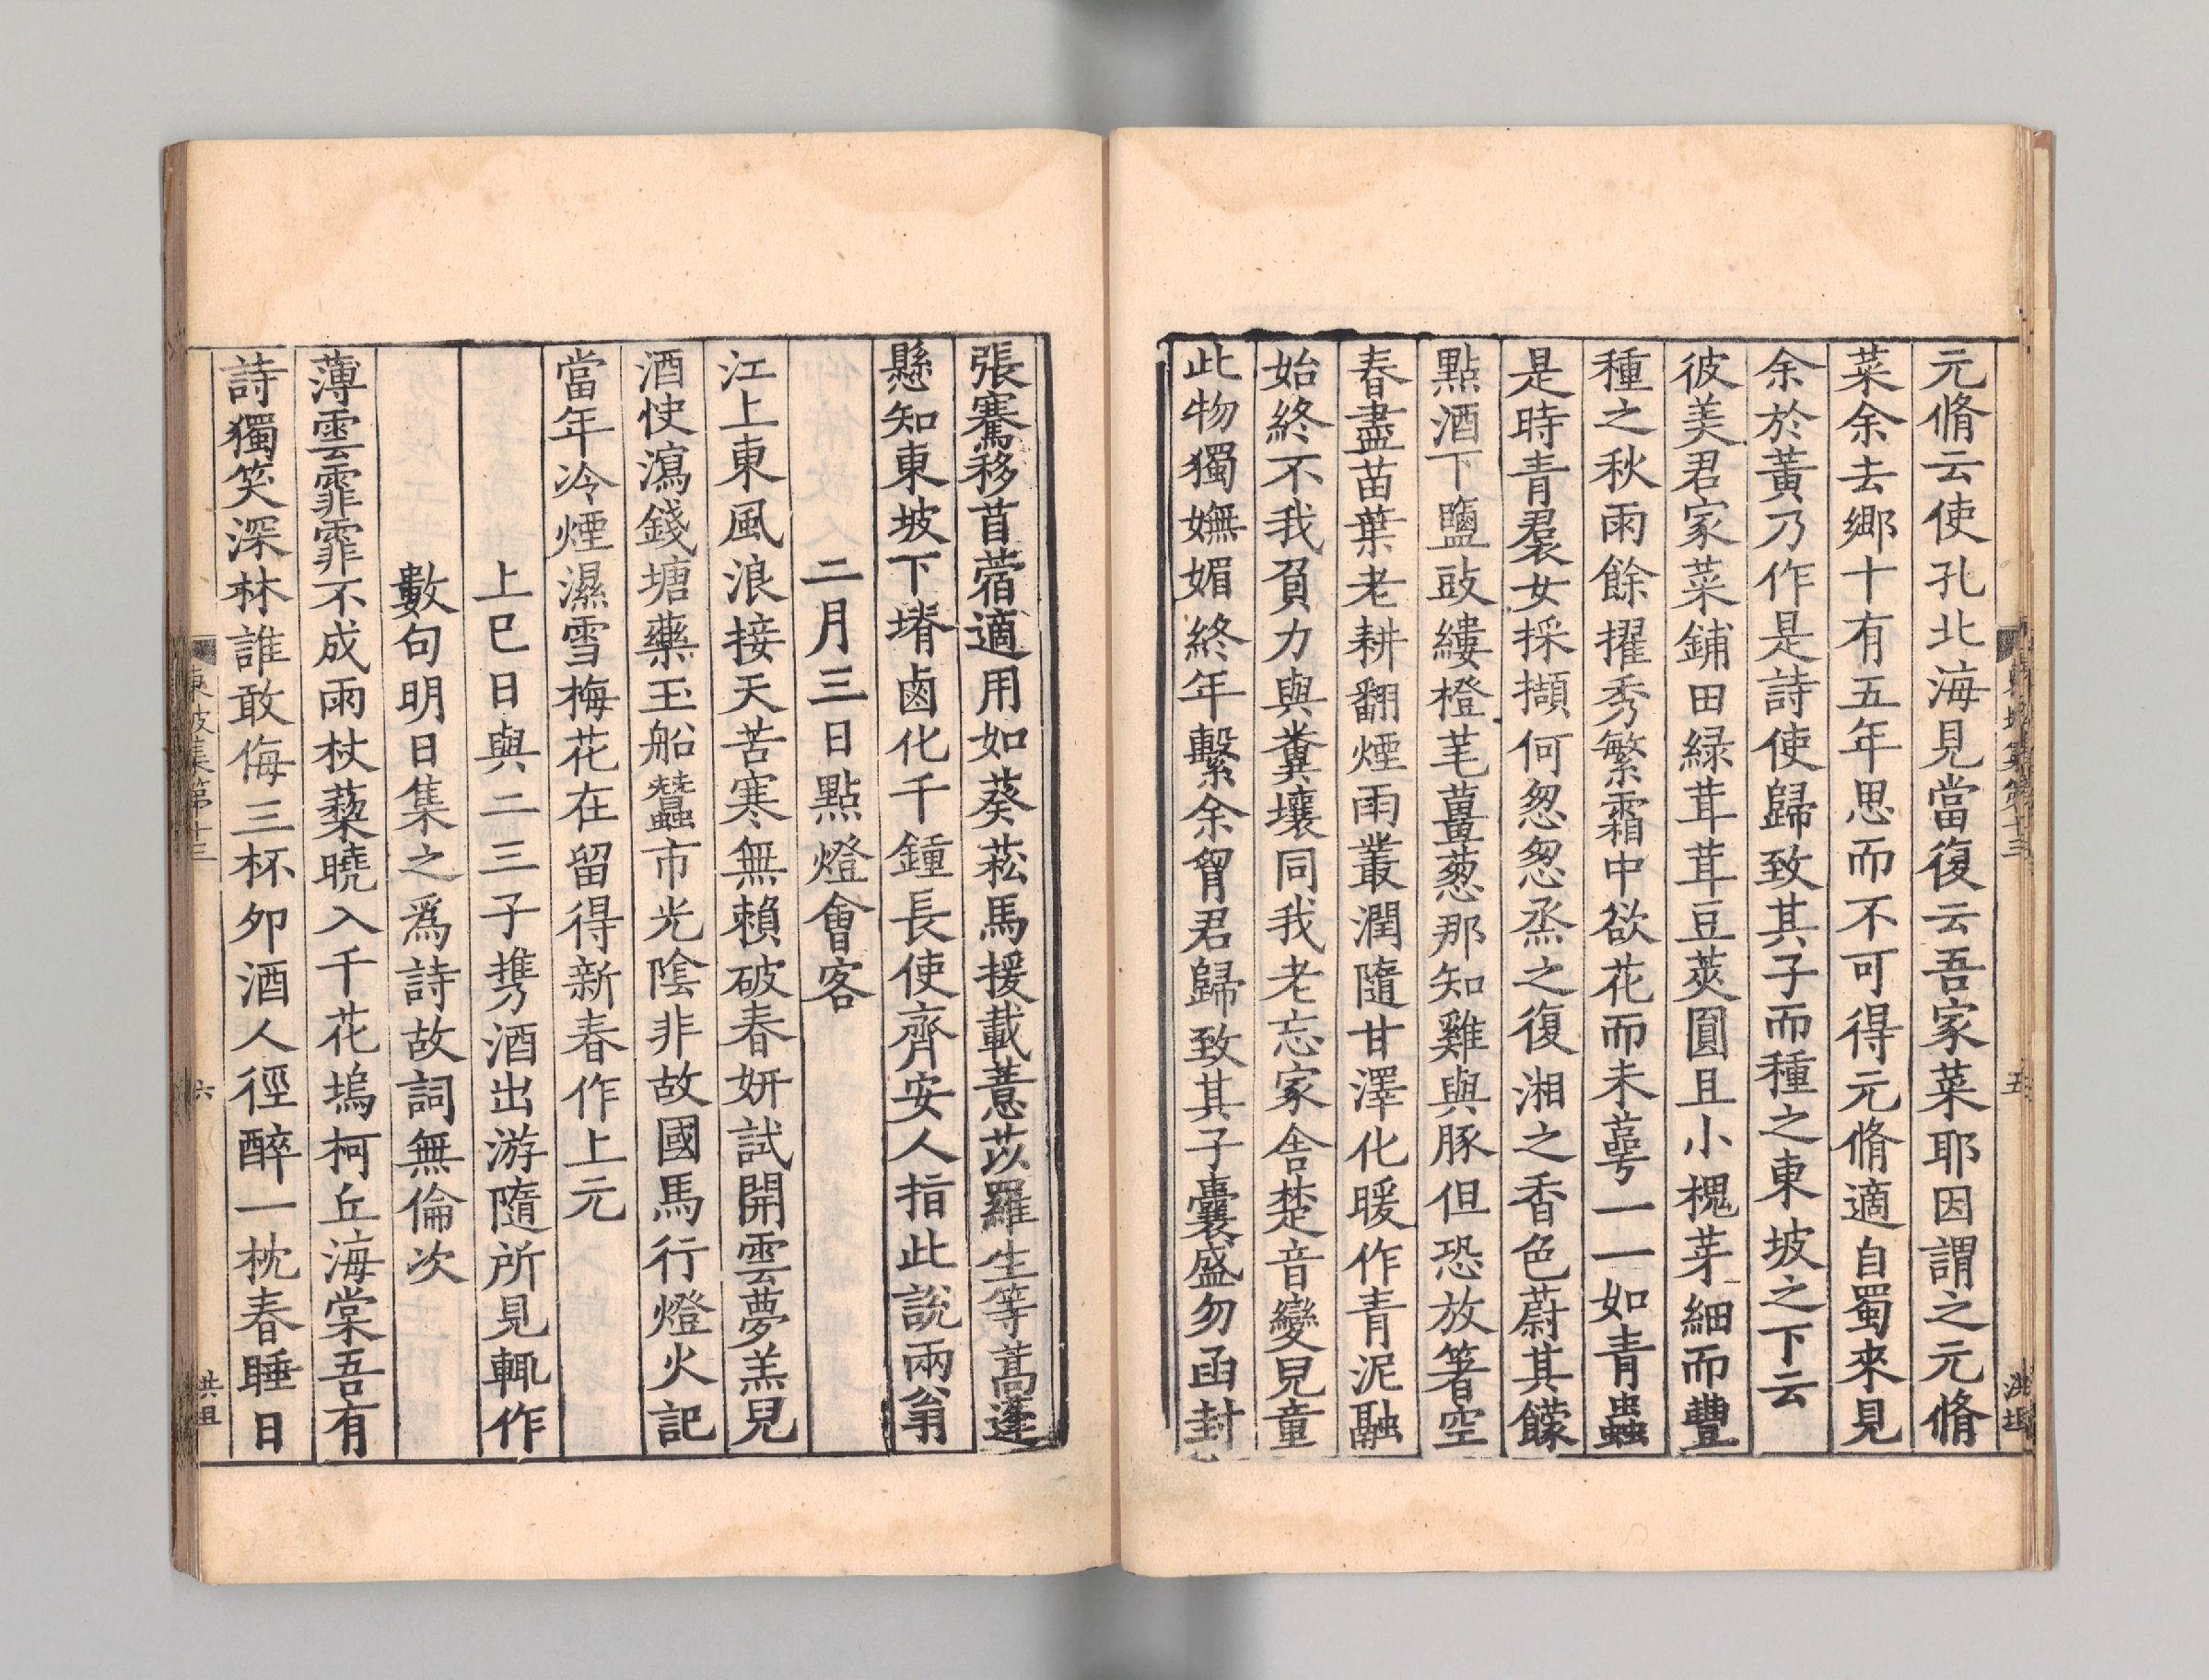 元脩云使孔北海見當復云吾家菜耶因謂之元脩
菜余去鄉十有五年思而不可得元脩適自蜀來見
余於黃乃作是詩使歸致其子而種之東坡之下云
彼美君家菜鋪田綠茸茸豆莢圓且小槐芽細而豐
種之秋雨餘擢秀繁霜中欲花而未萼一一如青蟲
是時青裙女採擷何怱怱烝之復湘之香色蔚其饛
點酒下鹽豉縷橙芼薑葱那知雞與豚但恐放箸空
春盡苗葉老耕翻煙雨叢潤隨甘澤化暖作青泥融
始終不我負力與糞壤同我老忘家舍楚音變兒童
此物獨嫵媚終年繫余胷君歸致其子囊盛勿函封
東坡集第十三
五
張騫移苜蓿適用如葵菘馬援載薏苡羅生等蒿蓬
懸知東坡下塉鹵化千鍾長使齊安人指此說兩翁
二月三日點燈會客
江上東風浪接天苦寒無賴破春妍試開雲夢羔兒
酒快瀉錢塘藥玉船蠶市光陰非故國馬行燈火記
當年冷煙濕雪梅花在留得新春作上元
上巳日與二三子攜酒出游隨所見輒作
數句明日集之爲詩故詞無倫次
薄雲霏霏不成雨杖藜曉入千花塢柯丘海棠吾有
詩獨笑深林誰敢侮三杯卯酒人徑醉一枕春睡日
東坡集第十三
六
洪